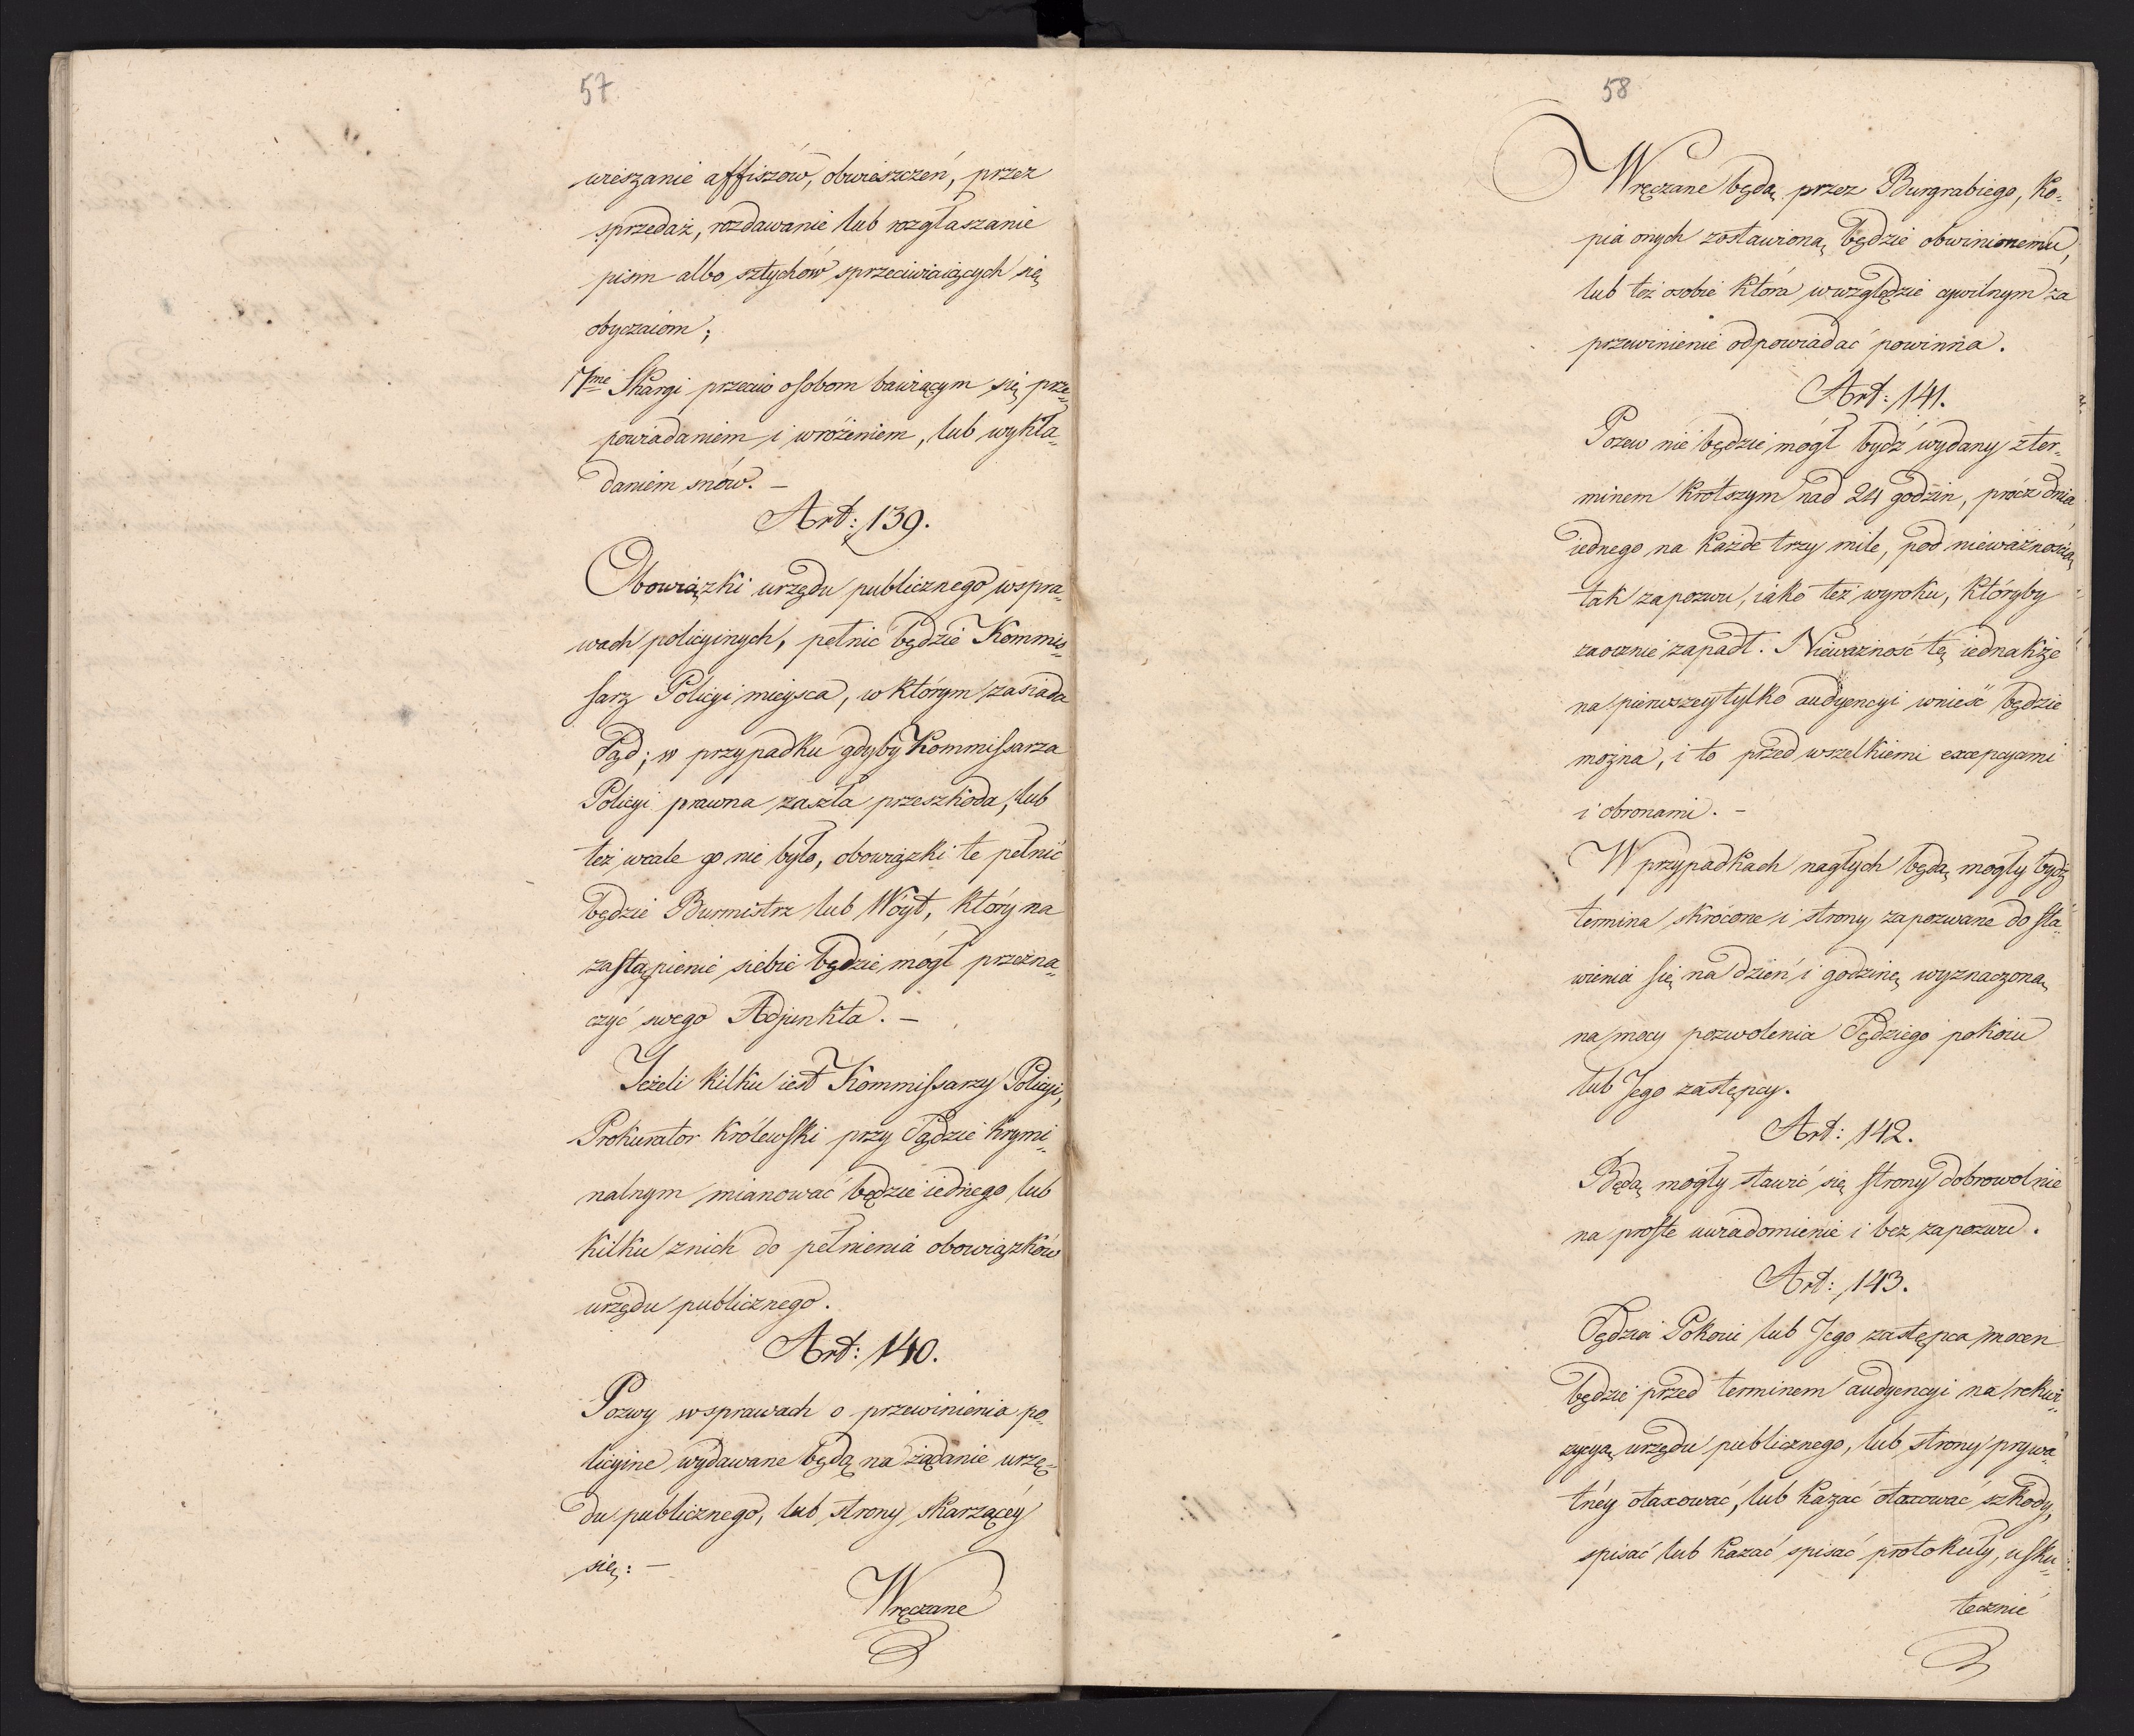 57
wieszanie affiszów, obwieszczeń, przez
sprzedaż, rozdawanie lub rozgłaszanie
pism albo sztychów sprzeciwiaiących się
obyczaiom;
7me Skargi przeciw osobom bawiącym się prze„
powiadaniem i wróżeniem, lub wykła„
daniem snów. —
Art: 139.
Obowiązki urzędu publicznego w spra„
wach policyinych, pełnić będzie Kommis„
sarz Policyi mieysca, w którym zasiada
Sąd; w przypadku gdyby Kommissarza
Policyi prawna zaszła przeszkoda, lub
też wcale go nie było, obowiązki te pełnić
będzie Burmistrz lub Wóyt, który na
zastąpienie siebie będzie mógł przezna„
czyć swego Adjunkta. —
Jeżeli kilku iest Kommissarzy Policyi,
Prokurator Królewski przy Sądzie krymi„
nalnym mianować będzie iednego lub
kilku z nich do pełnienia obowiązków
urzędu publicznego.
Art: 140.
Pozwy w sprawach o przewinienia po„
licyine wydawane będą na żądanie urzę„
du publicznego, lub strony skarżącéy
się: —
Wręczane
58
Wręczane będą przez Burgrabiego, ko„
pia onych zostawioną będzie obwinionemu,
lub też osobie która w względzie cywilnym za
przewinienie odpowiadać powinna.
Art: 141.
Pozew nie będzie mógł bydź wydany z ter„
minem krótszym nad 24 godzin, prócz dnia
iednego na każde trzy mile, pod nieważnością
tak zapozwu, iako też wyroku, któryby
zaocznie zapadł. Nieważność tę iednakże
na pierwszey tylko audyencyi wnieść będzie
można, i to przed wszelkiemi excepcyami
i obronami. —
W przypadkach nagłych będą mogły bydź
termina skrócone i strony zapozwane do sta„
wienia się na dzień i godzinę wyznaczoną
na mocy pozwolenia Sędziego pokoiu
lub Jego zastępcy.
Art: 142.
Będą mogły stawić się strony dobrowolnie
na proste uwiadomienie i bez zapozwu.
Art: 143.
Sędzia Pokoiu lub Jego zastępca mocen
będzie przed terminem audyencyi na rekwi„
zycyą urzędu publicznego, lub strony prywa„
tnéy otaxować, lub kazać otaxować szkody,
spisać lub kazać spisać protokuły, usku„
tecznić